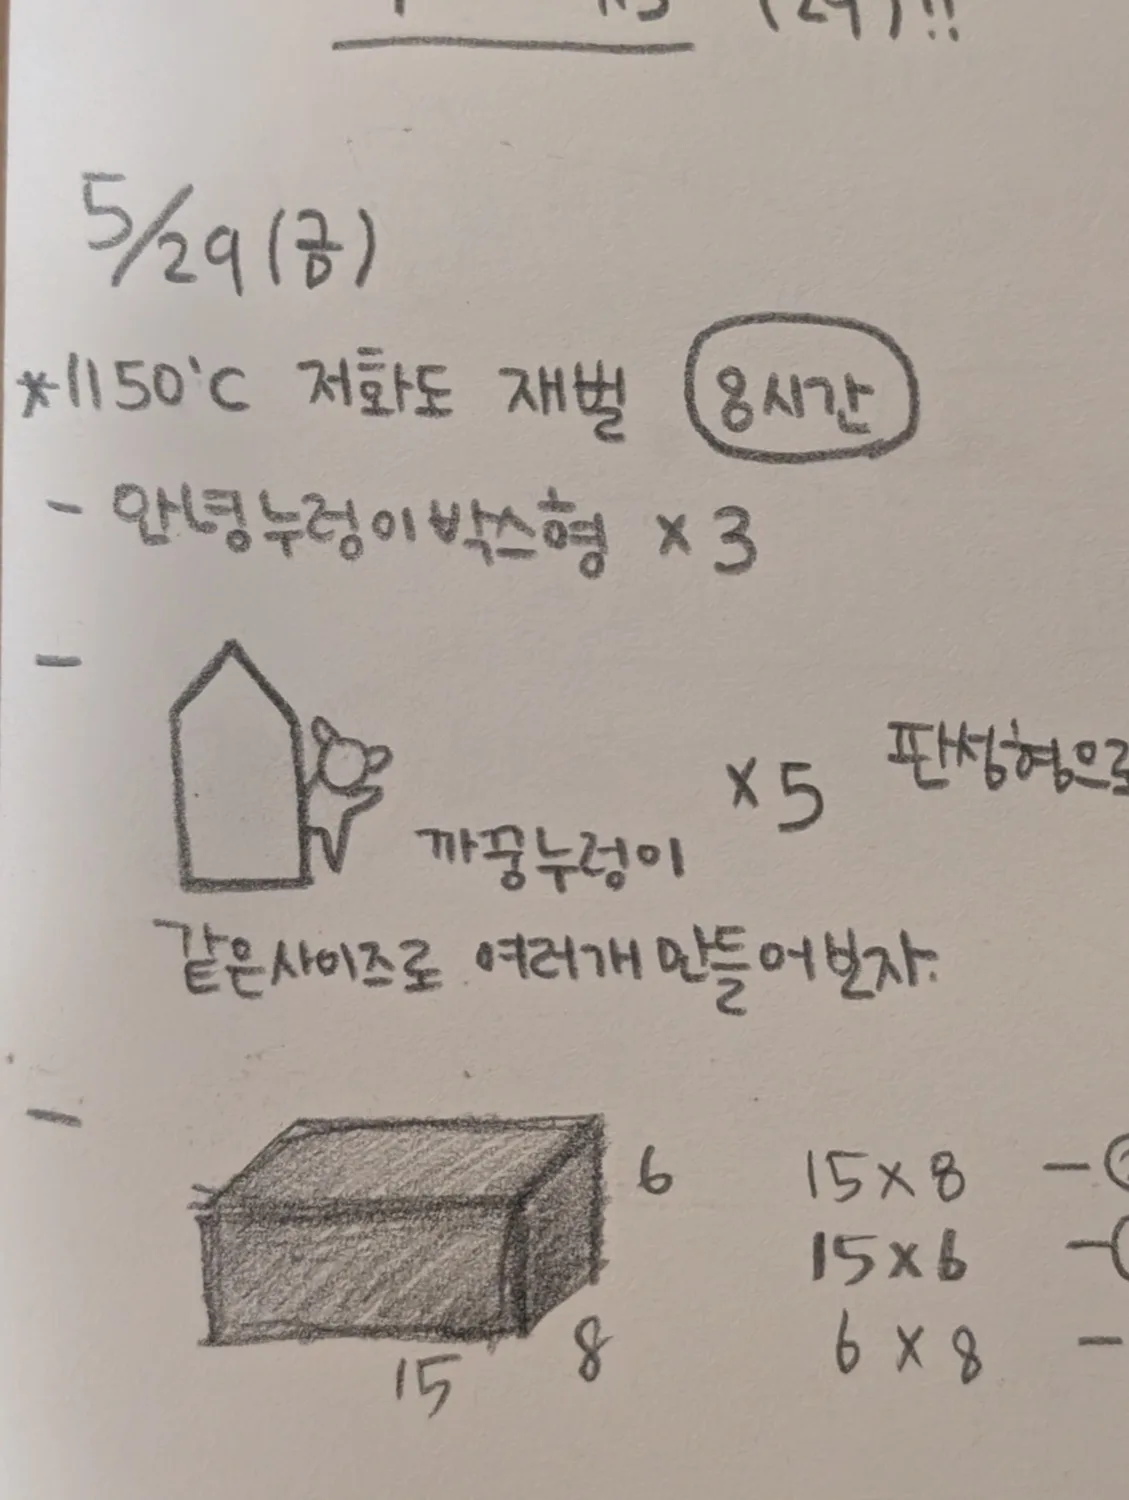 (29)!!
5/29(금)
*1150°C 저화도 재벌 8시간
- 안녕누렁이박스형 x3
- 까꿍누렁이 x5 판성형으로
같은사이즈로 여러개 만들어보자.
- 6
15
8
15x8 -
15x6 -
6x8 -